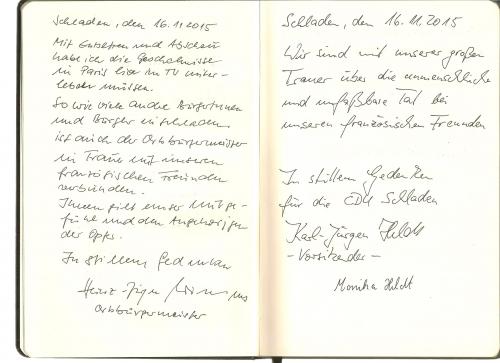 Schladen, den 16.11.2015
Mit Entsetzen und Abscheu
habe ich die Geschehnisse
in Paris live im TV miter-
leben müssen.
So wie viele andre Bürgerinnen
und Bürger in Schladen
ist auch der Ortsbürgermeister
in Trauer mit unseren
französischen Freunden
verbunden.
Ihnen gilt unser Mitge-
fühl und den Angehörigen
der Opfer.
In stillem Gedenken
Heinz-Jürgen
Ortsbürgermeister
Schladen, den 16.11.2015
Wir sind mit unserer großen
Trauer über die unmenschliche
und unfaßbare Tat bei
unseren französischen Freunden
In stillem Gedenken
für die CDU Schladen
Karl-Jürgen
- Vorsitzender -
Monika